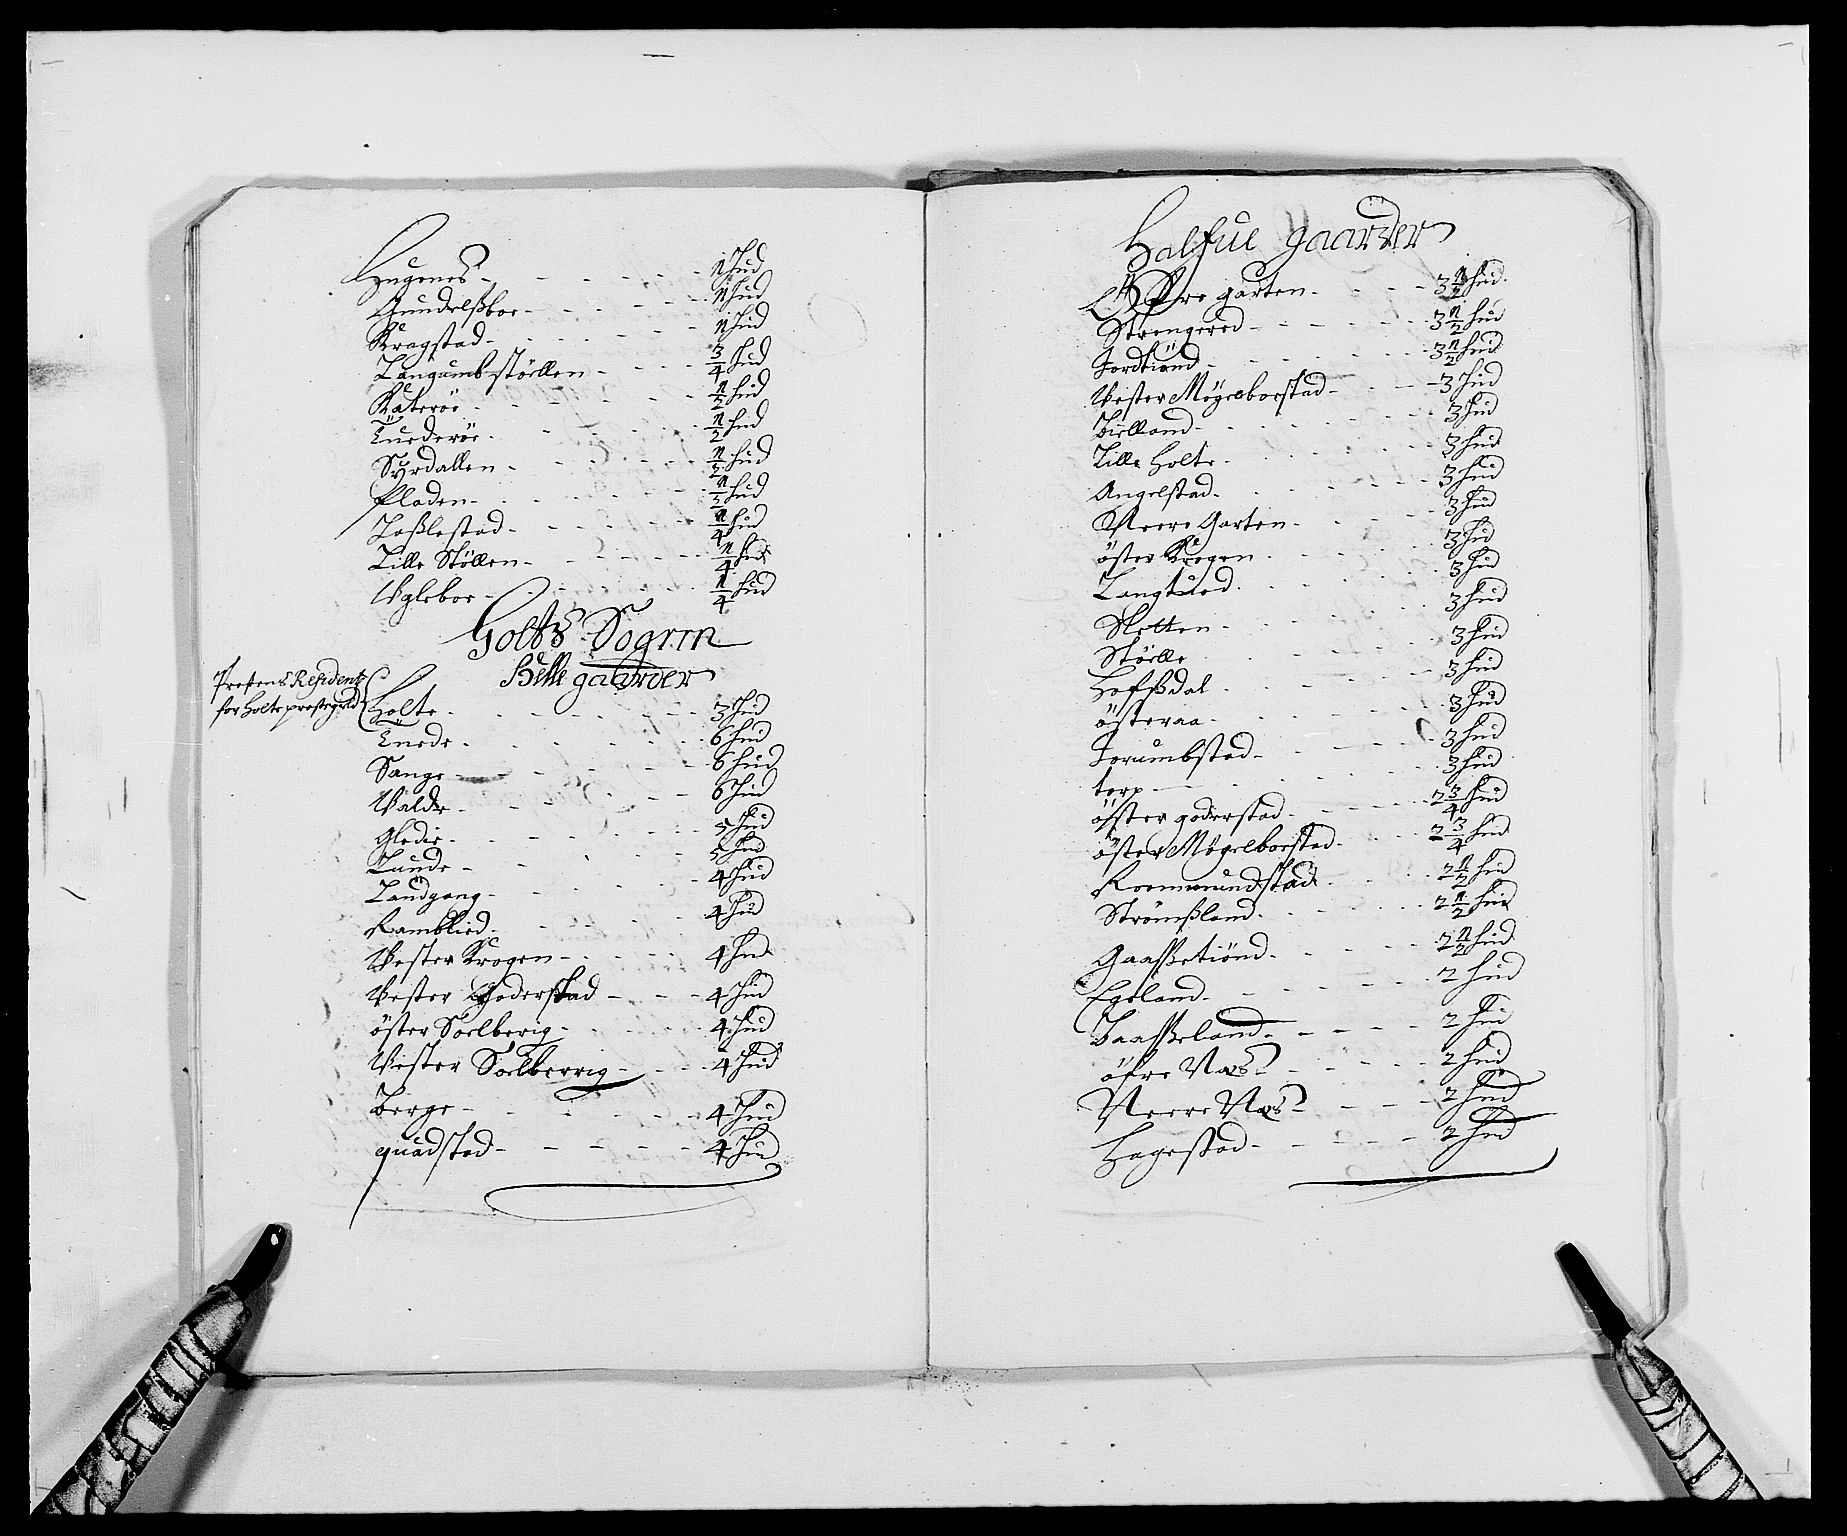 Hugenes - - - - - 1 hud
Gundelßboe - - - - 1 hud
Kragstad - - - - 1 hud
Langumbstöellen - - - 3/4 hud
Kateröe - - - - 1/2 hud
Tuederöe - - - - 1/2 hud
Syrdallen - - - - 1/2 hud
Pladen - - - - 1/2 hud
Loßlestad - - - - 1/4 hud
Lille Stöllen - - - - 1/4 hud
Ugleboe - - - - 1/4 hud
Holtz Sogen
Helle gaarder
Prestens Residentz
for Holte prestegield
Holte - - - - 3 hud
Tuede - - - - 6 hud
Sange - - - - 6 hud
Walde - - - - 6 hud
Glodie - - - - 5 hud
Lunde - - - - 5 hud
Landgang - - - - 4 hud
Ramblied - - - - 4 hud
Wester Krogen - - - - 4 hud
Wester Goderstad - - - 4 hud
öster Soelberig - - - - 4 hud
Wester Soelberrig - - - 4 hud
Berge - - - - 4 hud
quadstad - - - - 4 hud
Halfue gaarder
öfre garten - - - - 3 1/2 hud
Strengered - - - - 3 1/2 hud
Jordtiönd - - - - 3 1/2 hud
Wester Mögelboestad - - - 3 hud
Bielland - - - - 3 hud
Lille Holte - - - - 3 hud
Angelstad - - - - 3 hud
Neere Garten - - - - 3 hud
öster Krogen - - - - 3 hud
Langtued - - - - 3 hud
Sletten - - - - 3 hud
Stöelle - - - - 3 hud
Hofßdal - - - - 3 hud
österaa - - - - 3 hud
Torumbstad - - - - 3 hud
torp - - - - 3 hud
öster goderstad - - - - 2 3/4 hud
öster Mögelboestad - - - 2 3/4 hud
Roemmundstad - - - 2 1/2 hud
Strömßland - - - - 2 1/2 hud
Gaaßetiönd - - - - 2 1/2 hud
Egeland - - - - 2 hud
Baaßeland - - - - 2 hud
öfre Næs - - - - 2 hud
Neere Næs - - - - 2 hud
Hagestad - - - - 2 hud